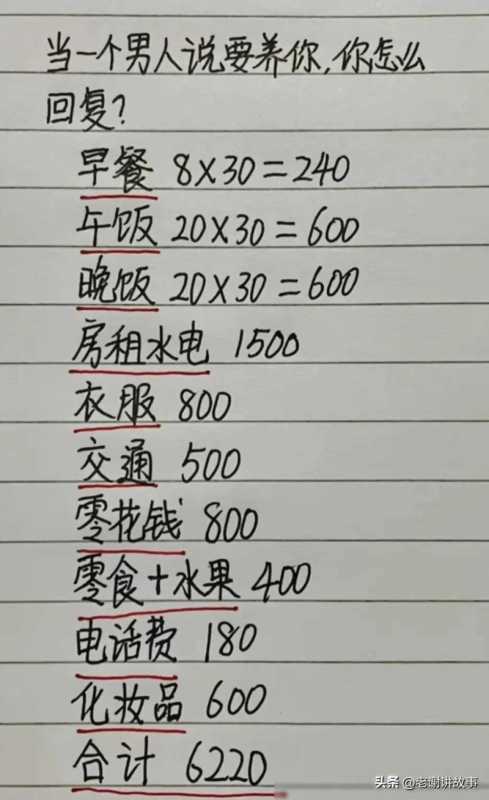 当一个男人说要养你,你怎么
回复?
早餐 8×30=240
午饭 20×30=600
晚饭 20×30=600
房租水电 1500
衣服 800
交通 500
零花钱 800
零食+水果 400
电话费 180
化妆品 600
合计 6220
头条 @老谢讲故事